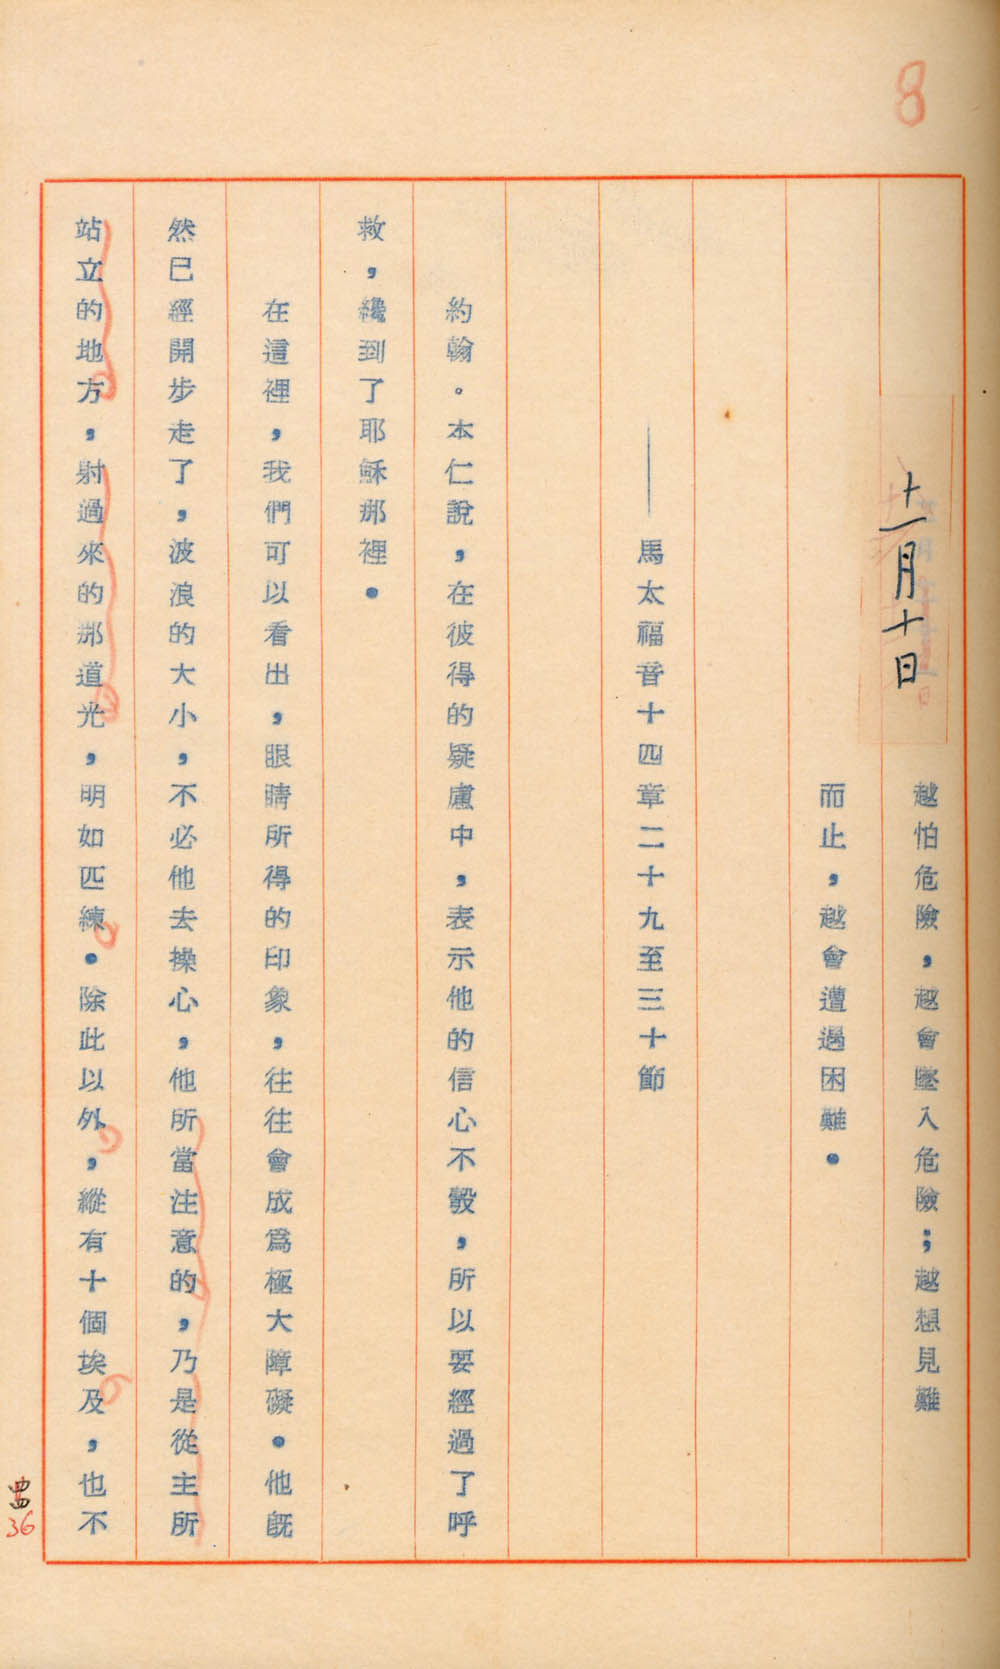 8
十一月十日
越怕危險，越會墜入危險；越想見難
而止，越會遭遇困難。
——馬太福音十四章二十九至三十節
約翰。本仁說，在彼得的疑慮中，表示他的信心不彀，所以要經過了呼
救，纔到了耶穌那裡。
在這裡，我們可以看出，眼睛所得的印象，往往會成爲極大障礙。他旣
然已經開步走了，波浪的大小，不必他去操心，他所當注意的，乃是從主所
站立的地方，射過來的那道光，明如匹練。除此以外，縱有十個埃及，也不
36